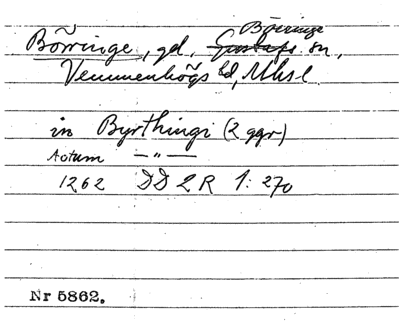 Börringe
Börringe, gd, Gustafs sn,
Vemmenhögs hd, Mhsl.
in Byrthingi (2 ggr)
Actum — " —
1262 DD 2 R 1: 270
Nr 5862.